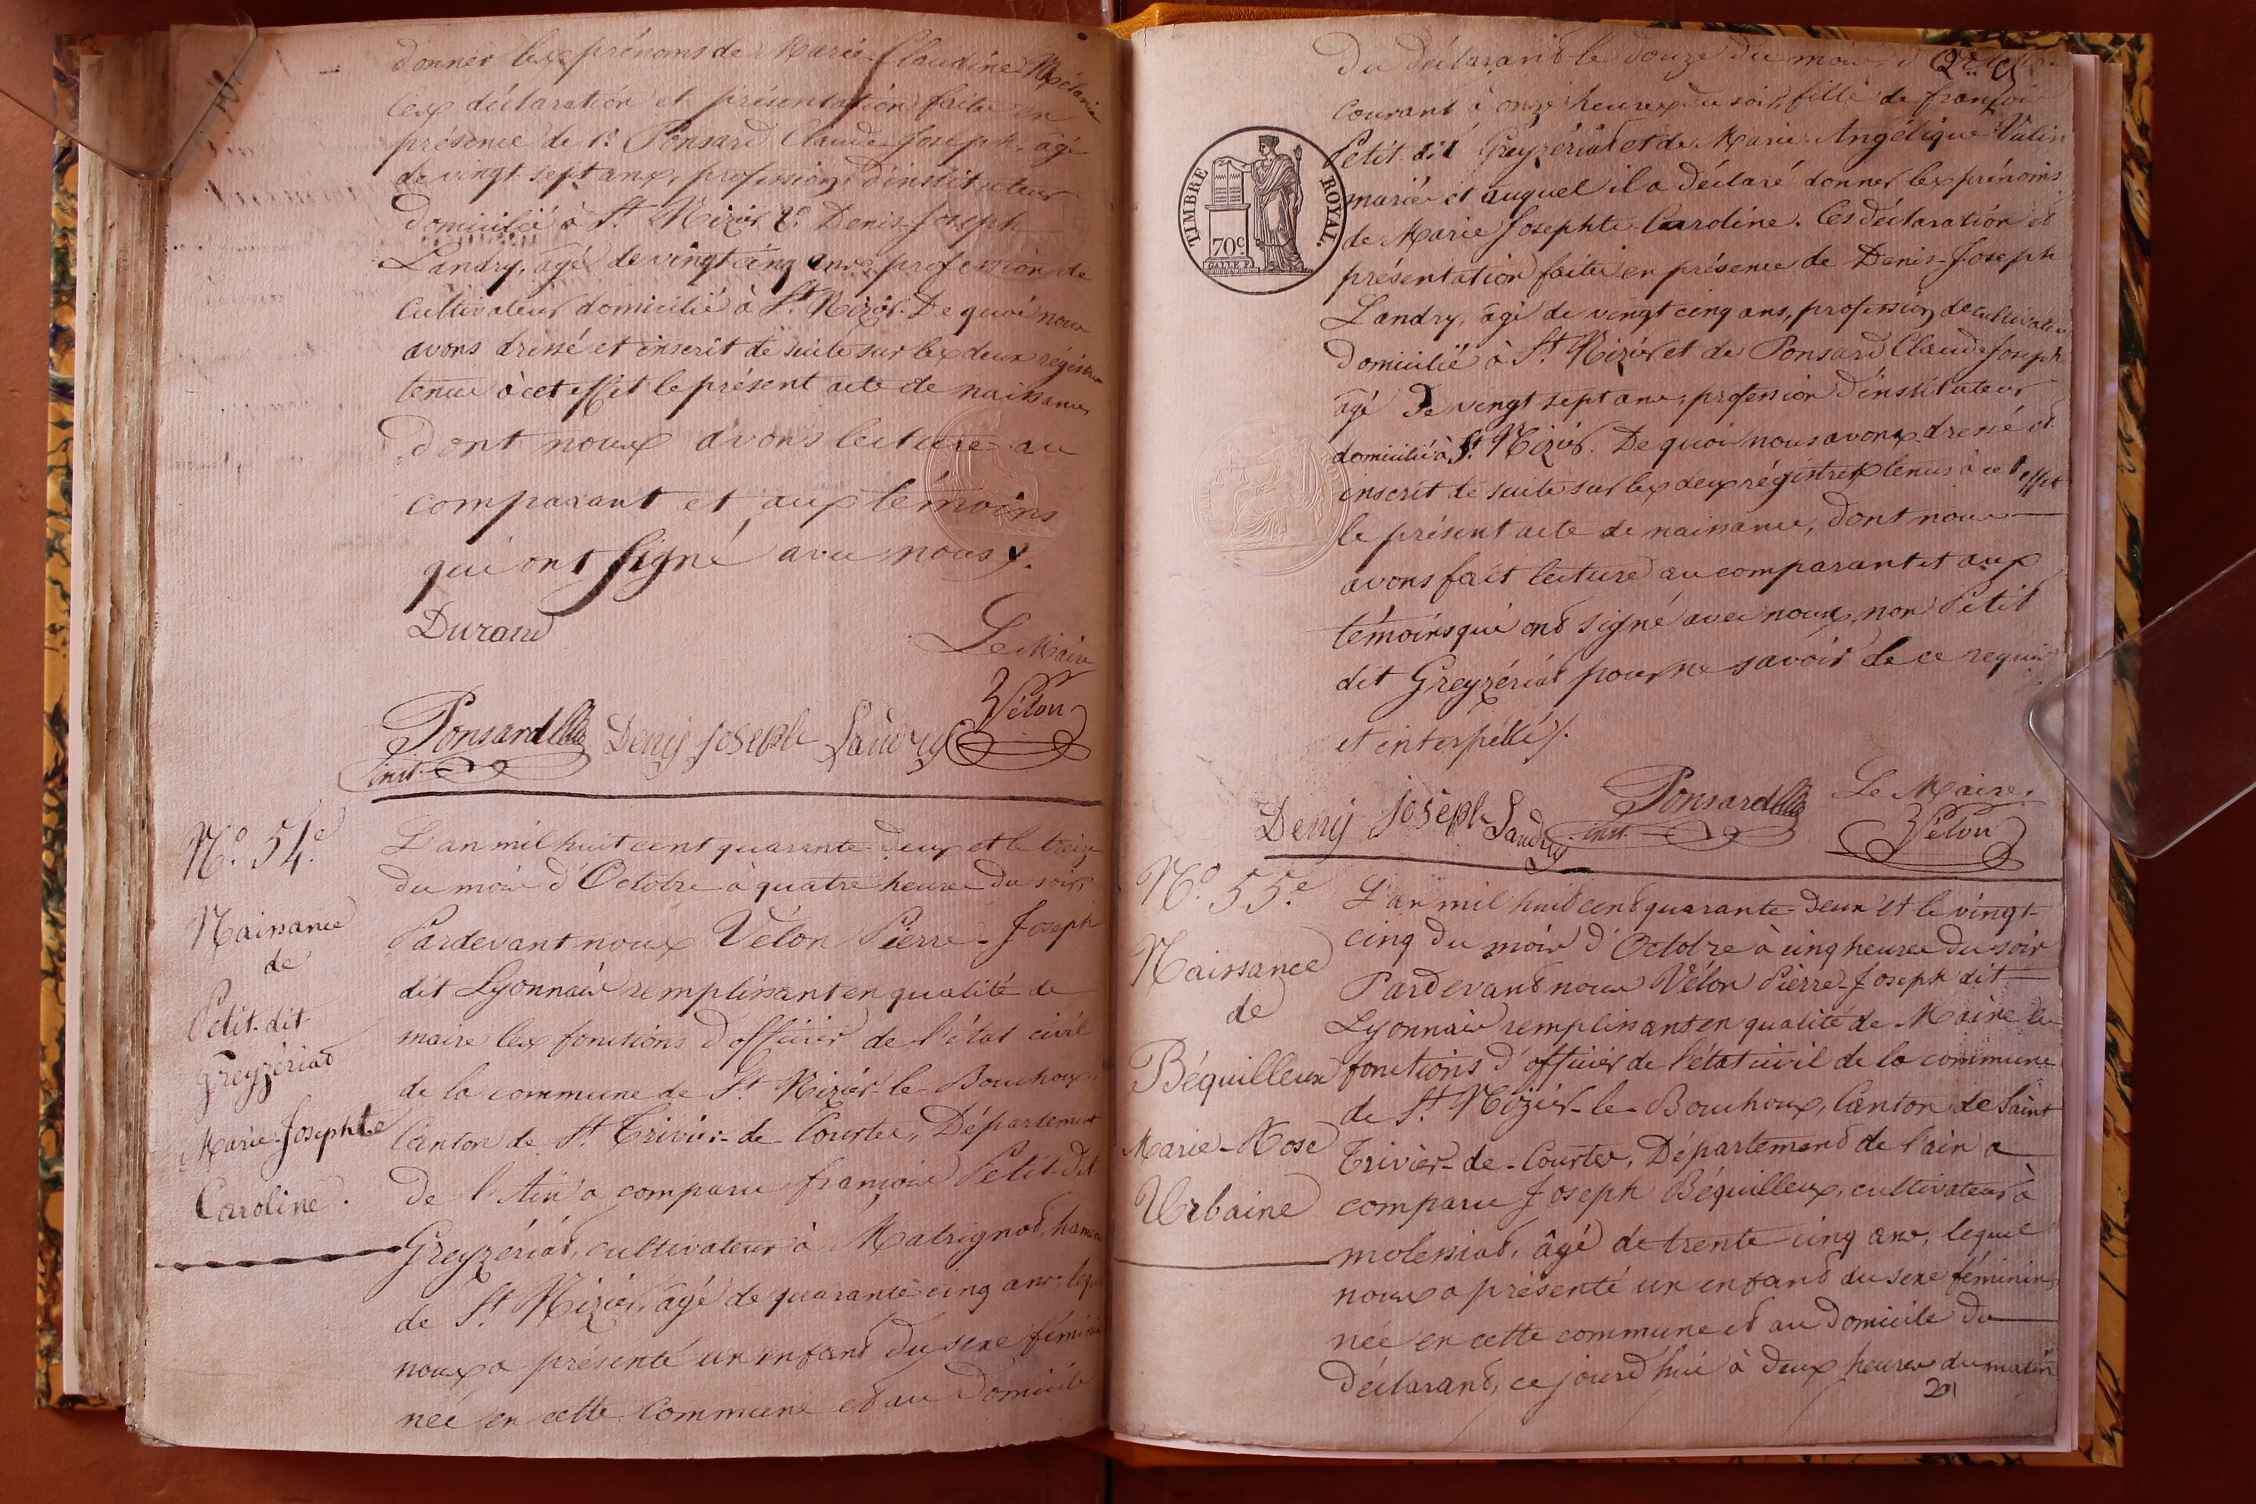 donner les prénoms de Marie Claudine Mélanie
Ces déclaration et présentation faites en
présence de 1° Ponsard Claude-Joseph, âgé
de vingt sept ans, profession d'instituteur
domicilié à St Nizier 2° Denis-Joseph
Landry, âgé de vingt cinq ans profession de
cultivateur domicilié à St Nizier. De quoi nous
avons dressé et inscrit de suite sur les deux régistres
tenus à cet effet le présent acte de naissance,
dont nous avons lecture au
comparant et aux témoins
qui ont signé avec nous
Durand
Le Maire
Vélon
Ponsard
inst.
Denij joseph Landry
N° 54e
Naissance
de
Petit-dit
Greyzériat
Marie-Josephte
Caroline.
L'an mil huit cent quarante-deux et le treize
du mois d'Octobre à quatre heures du soir,
Pardevant nous Vélon Pierre-Joseph
dit Lyonnais remplissant en qualité de
maire les fonctions d'officier de l'état civil
de la commune de St Nizier-le-Bouchoux,
Canton de St Trivier-de-Courtes, Département
de l'Ain a comparu françois Petit-dit
Greyzériat, cultivateur à Matrignat, hameau
de St Nizier, âgé de quarante cinq ans, lequel
nous a présenté un enfant du sexe féminin
née en cette commune et au domicile
TIMBRE ROYAL.
70c
du déclarant le douze du mois d'
courant à onze heures du soir, fille de françois
Petit dit Greyzériat et de Marie-Angélique Vulin
mariés et auquel il a déclaré donner les prénoms
de Marie Josephte Caroline. Ces déclaration et
présentation faites en présence de Denis-Joseph
Landry, âgé de vingt cinq ans, profession de cultivateur
domicilié à St Nizier et de Ponsard Claude Joseph
âgé de vingt sept ans, profession d'instituteur
domicilié à St Nizier. De quoi nous avons dressé et
inscrit de suite sur les deux régistres tenus à cet effet
le présent acte de naissance, dont nous
avons fait lecture au comparant et aux
témoins qui ont signé avec nous, non Petit
dit Greyzériat pour ne savoir de ce requis
et interpéllé/.
Denij joseph Landry
Ponsard
inst.
Le Maire
Vélon
N° 55e
Naissance
de
Béquilleux
Marie-Rose
Urbaine
L'an mil huit cent quarante-deux et le vingt-
cinq du mois d'Octobre à cinq heures du soir
Pardevant nous Vélon Pierre-Joseph dit
Lyonnais remplissant en qualité de Maire les
fonctions d'officier de l'état civil de la commune
de St Nizier-le-Bouchoux, Canton de Saint
Trivier-de-Courtes, Département de l'ain a
comparu Joseph Béquilleux, cultivateur à
molessiat, âgé de trente cinq ans, lequel
nous a présenté un enfant du sexe féminin,
née en cette commune et au domicile du
déclarant, ce jourd'hui à deux heures du matin
201